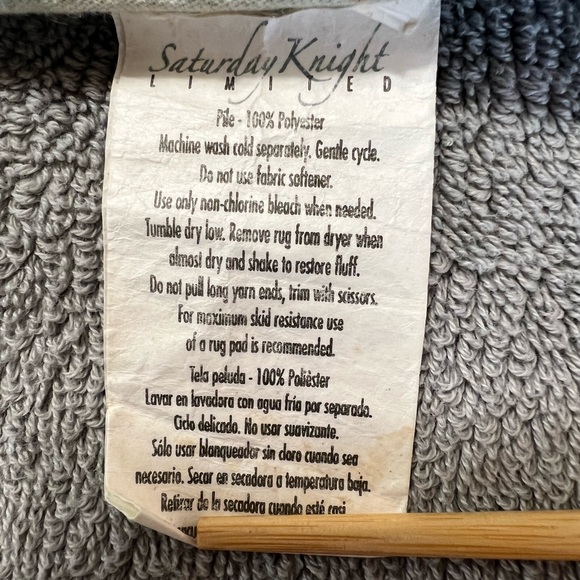 Saturday Knight
LIMITED
Pile - 100% Polyester
Machine wash cold separately. Gentle cycle.
Do not use fabric softener.
Use only non-chlorine bleach when needed.
Tumble dry low. Remove rug from dryer when
almost dry and shake to restore fluff.
Do not pull long yarn ends, trim with scissors.
For maximum skid resistance use
of a rug pad is recommended.
Tela peluda - 100% Polièster
Lavar en lavadora con agua fría por separado.
Ciclo delicado. No usar suavizante.
Sólo usar blanqueador sin cloro cuando sea
necesario. Secar en secadora a temperatura baja.
Retirar de la secadora cuando esté casi